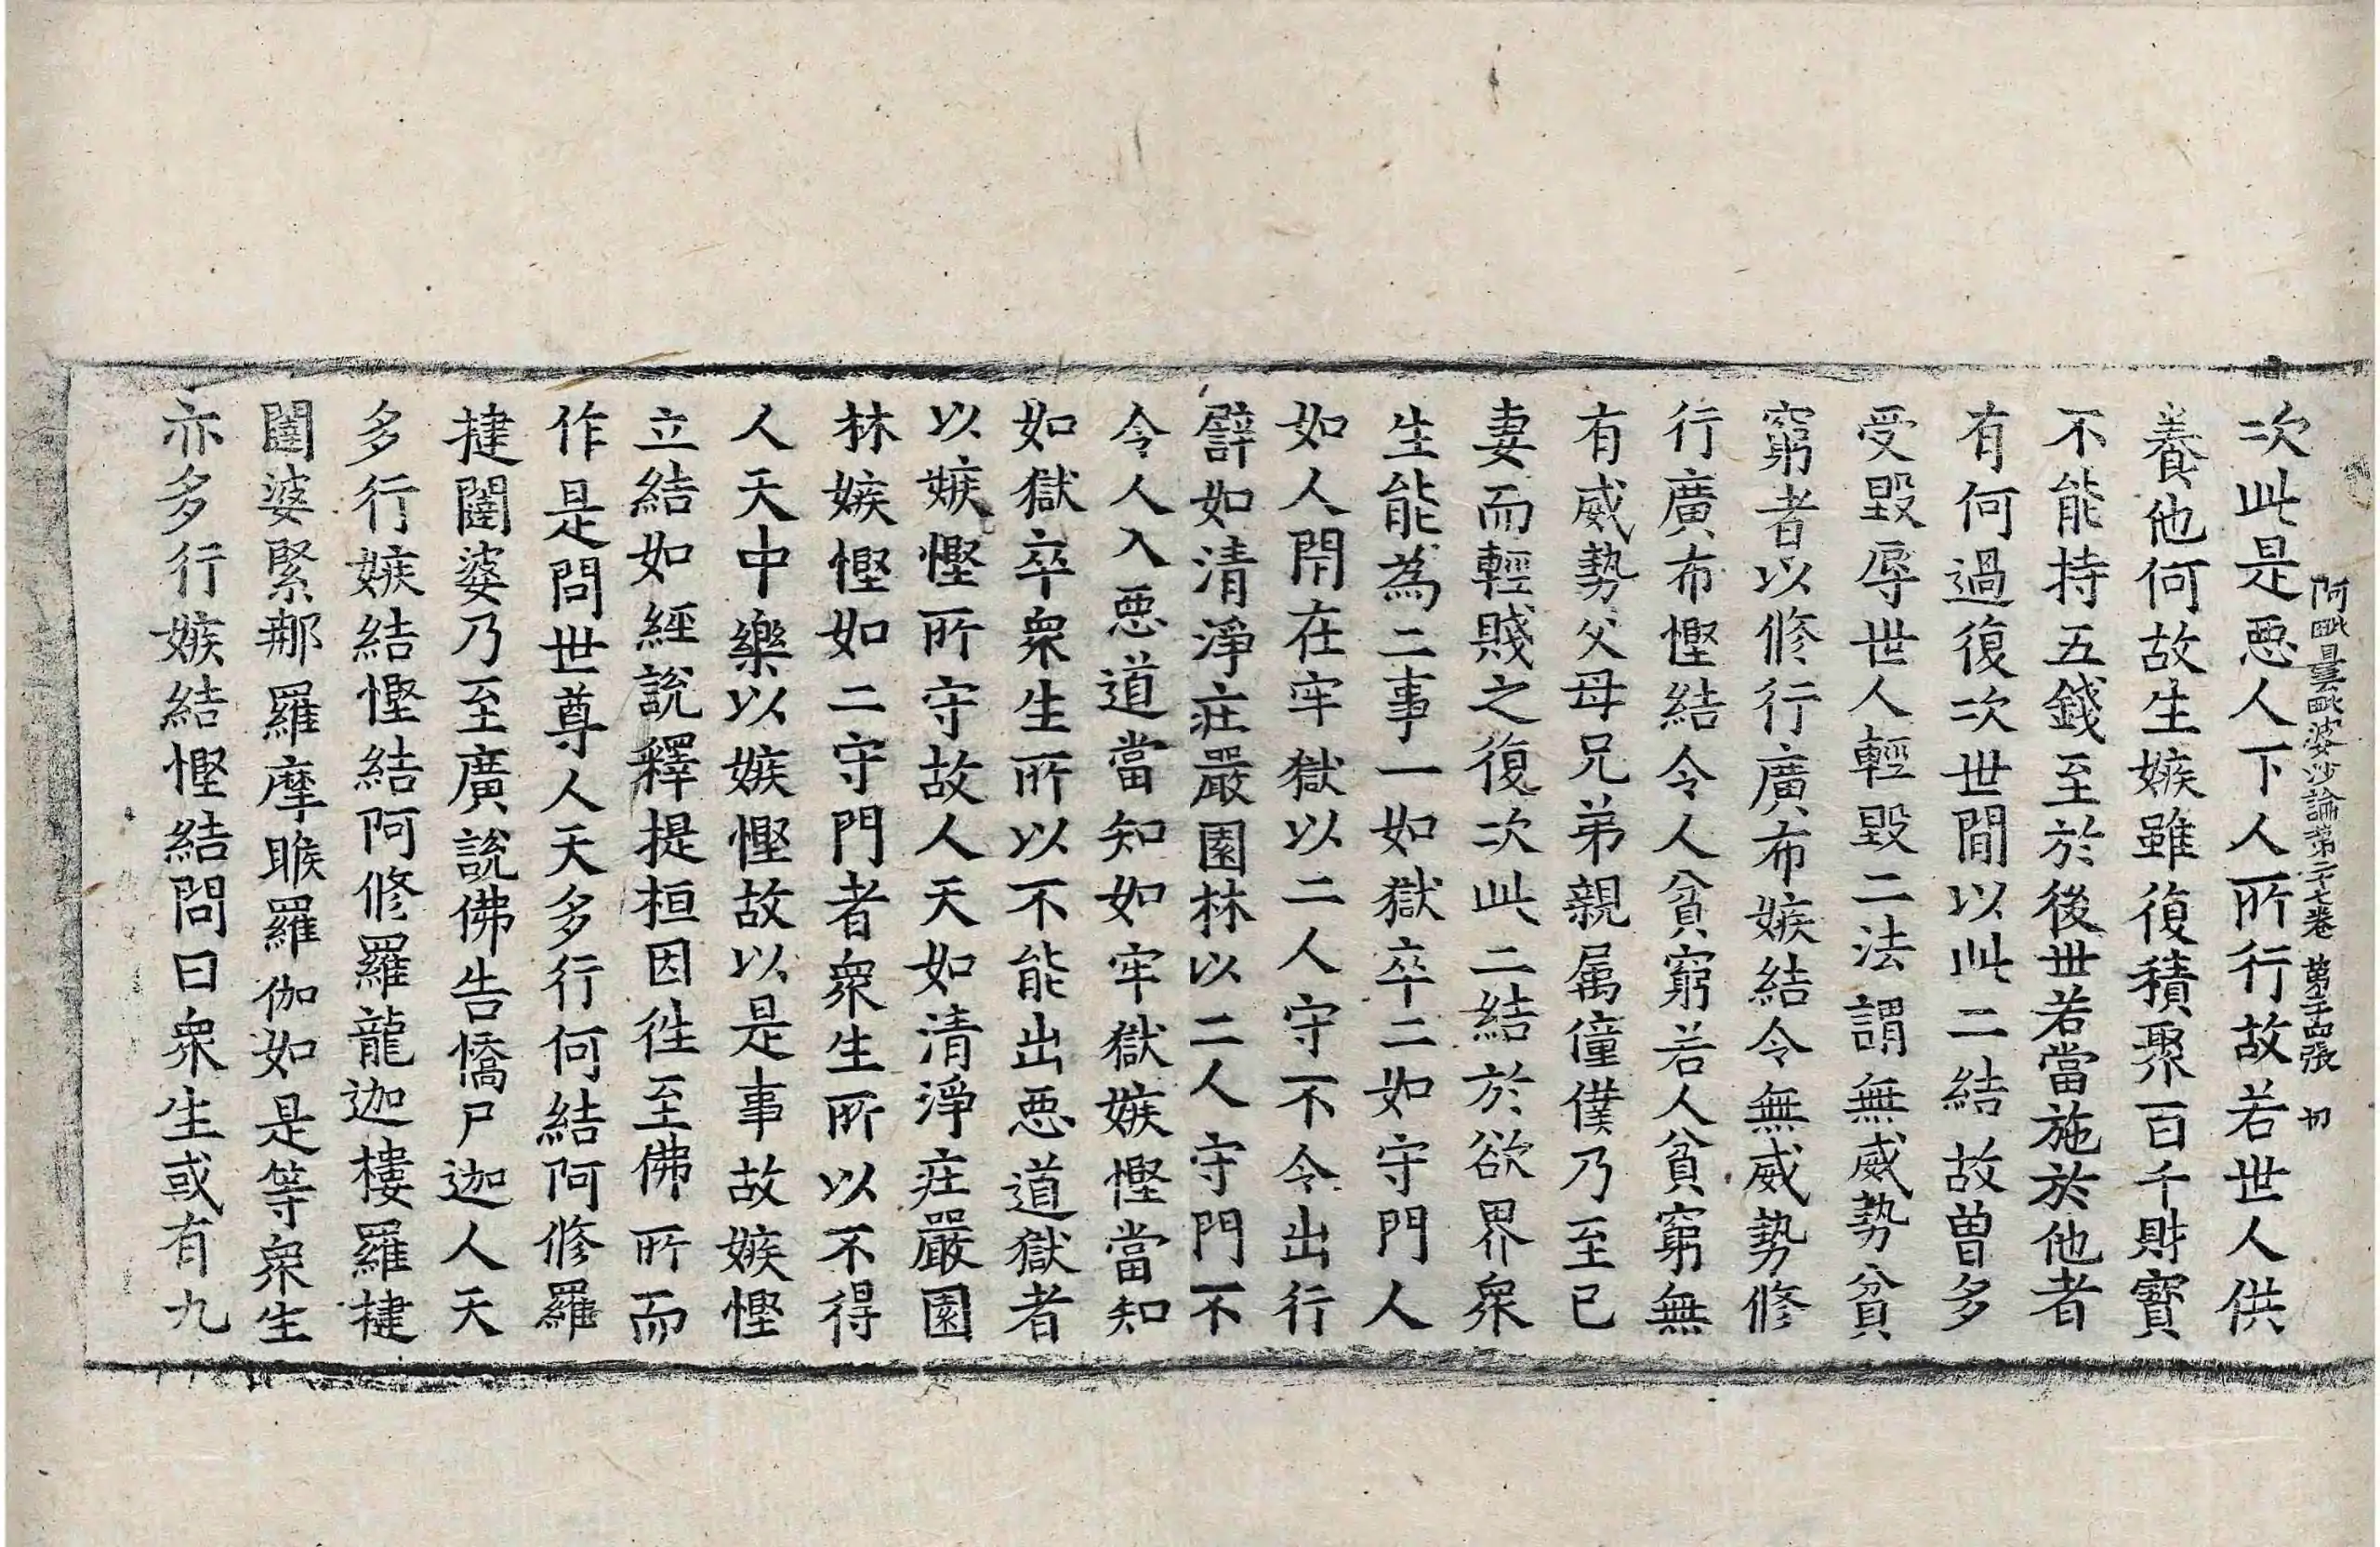 阿毗曇毗婆沙論第二十七卷 第三十四張 切
次此是惡人下人所行故若世人供
養他何故生嫉雖復積聚百千財寶
不能持五錢至於後世若當施於他者
有何過復次世間以此二結故曽多
受毀辱世人輕毀二法謂無威勢貧
窮者以修行廣布嫉結令無威勢修
行廣布慳結令人貧窮若人貧窮無
有威勢父母兄弟親属僮僕乃至已
妻而輕賤之復次此二結於欲界衆
生能為二事一如獄卒二如守門人
如人閇在牢獄以二人守不令出行
譬如清淨莊嚴園林以二人守門不
令人入惡道當知如牢獄嫉慳當知
如獄卒衆生所以不能出惡道獄者
以嫉慳所守故人天如清淨莊嚴園
林嫉慳如二守門者衆生所以不得
人天中樂以嫉慳故以是事故嫉慳
立結如經說釋提桓因徃至佛所而
作是問世尊人天多行何結阿修羅
揵闥婆乃至廣說佛告憍尸迦人天
多行嫉結慳結阿修羅龍迦樓羅揵
闥婆緊那羅摩睺羅伽如是等衆生
亦多行嫉結慳結問曰衆生或有九